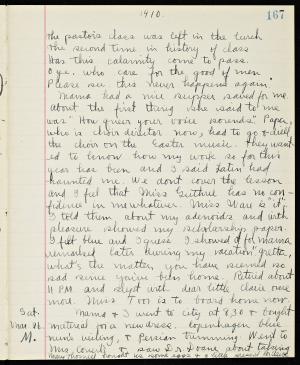 1910.
167
the pastor's class was left in the lurch
the second time in history of class
Has this calamity come to pass.
O ye. who care for the good of men
Please see this never happens again.
Mama had a nice supper saved for me.
About the first thing she said to me
was "How queer your voice sounds." Papa,
who is choir director now, had to go & drill
the choir on the Easter music. They want-
ed to know how my work so far this
year has been and I said Latin had
haunted me. We don't cover the lesson
and I feel that Miss Guthrie has no con-
fidence in me whatever. Miss Way is "it".
I told them about my adenoids and with
pleasure showed my scholarship paper.
I felt blue and I guess I showed it for mama
remarked later during my vacation
what's the matter, you have seemed so
sad since you've been home. Retired about
11 PM and slept with dear little Claire once
more. Miss is to board home now.
Sat. Mama & I went to city at 9,30 & bought
Mar. 26. material for a new dress. Copenhagen blue
M. nun's veiling, & Persian trimming. Went to
Mrs. & saw Dr. Doane about taking